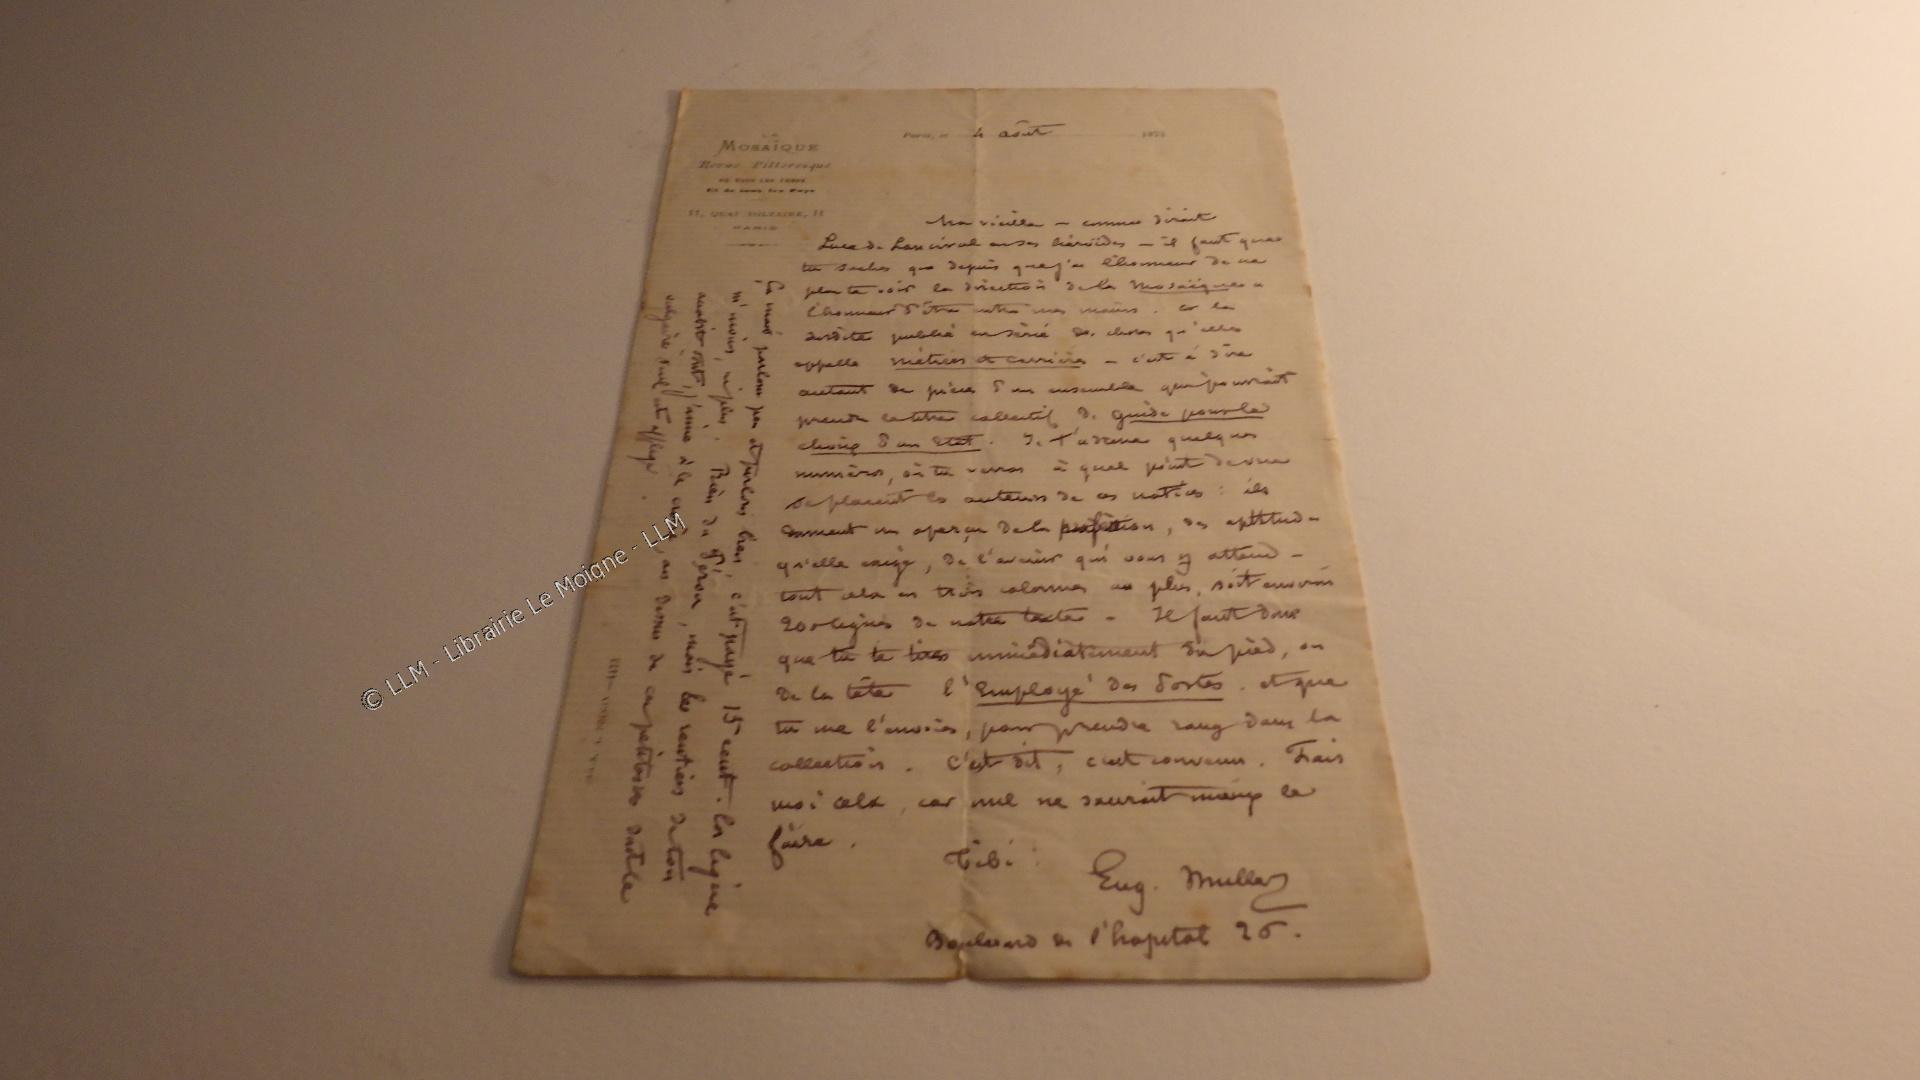 LA
MOSAÏQUE
Revue Pittoresque
DE TOUS LES TEMPS
Et de tous les Pays
11, QUAI VOLTAIRE, 11
PARIS
Paris, le 4 août 187
Ma vieille — comme dirait
Luce de Lancival en ses héroïdes — il faut que
tu saches que depuis que j'ai l'honneur de ne
plus te voir la direction de la Mosaïque a
l'honneur d'être entre mes mains. Or la
susdite publie en série des choses qu'elle
appelle métiers et carrières — c'est à dire
autant de pièces d'un ensemble qui pourrait
prendre le titre collectif de guide pour le
choix d'un état. Je t'adresse quelques
numéros, où tu verras à quel point de vue
se placent les auteurs de ces notices : ils
donnent un aperçu de la profession, des aptitudes
qu'elle exige, de l'avenir qui vous y attend —
tout cela en trois colonnes au plus, soit environ
200 lignes de notre texte — Il faut donc
que tu te tires immédiatement du pied, ou
de la tête l'Employé des Postes. et que
tu me l'envoies, pour prendre rang dans la
collection. C'est dit, c'est convenu. Fais
moi cela, car nul ne saurait mieux le
faire.
Tibi :
Eug. Muller
Boulevard de l'hopital 26.
Ça mais parlons peu et parlons bien, c'est payé 15 cent. la ligne
ni moins, ni plus. Rien du Pérou, mais les rentiers de ton
sont, j'aime à le croire, au dessus de ces petitesses dont le
vulgaire seul est affligé.
© LLM - Librairie Le Moigne - LLM